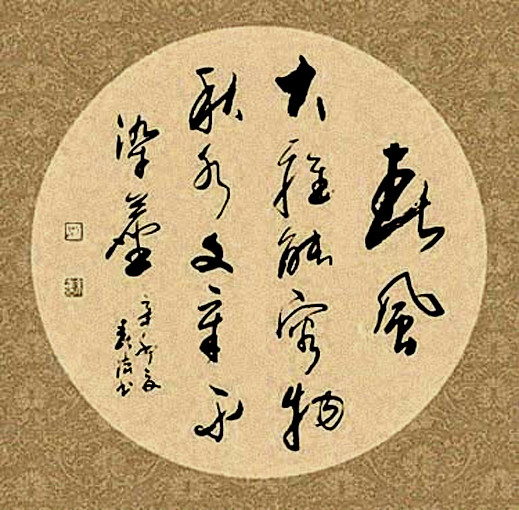 春風
大雅能容物
秋水文章不
染塵
辛卯夏